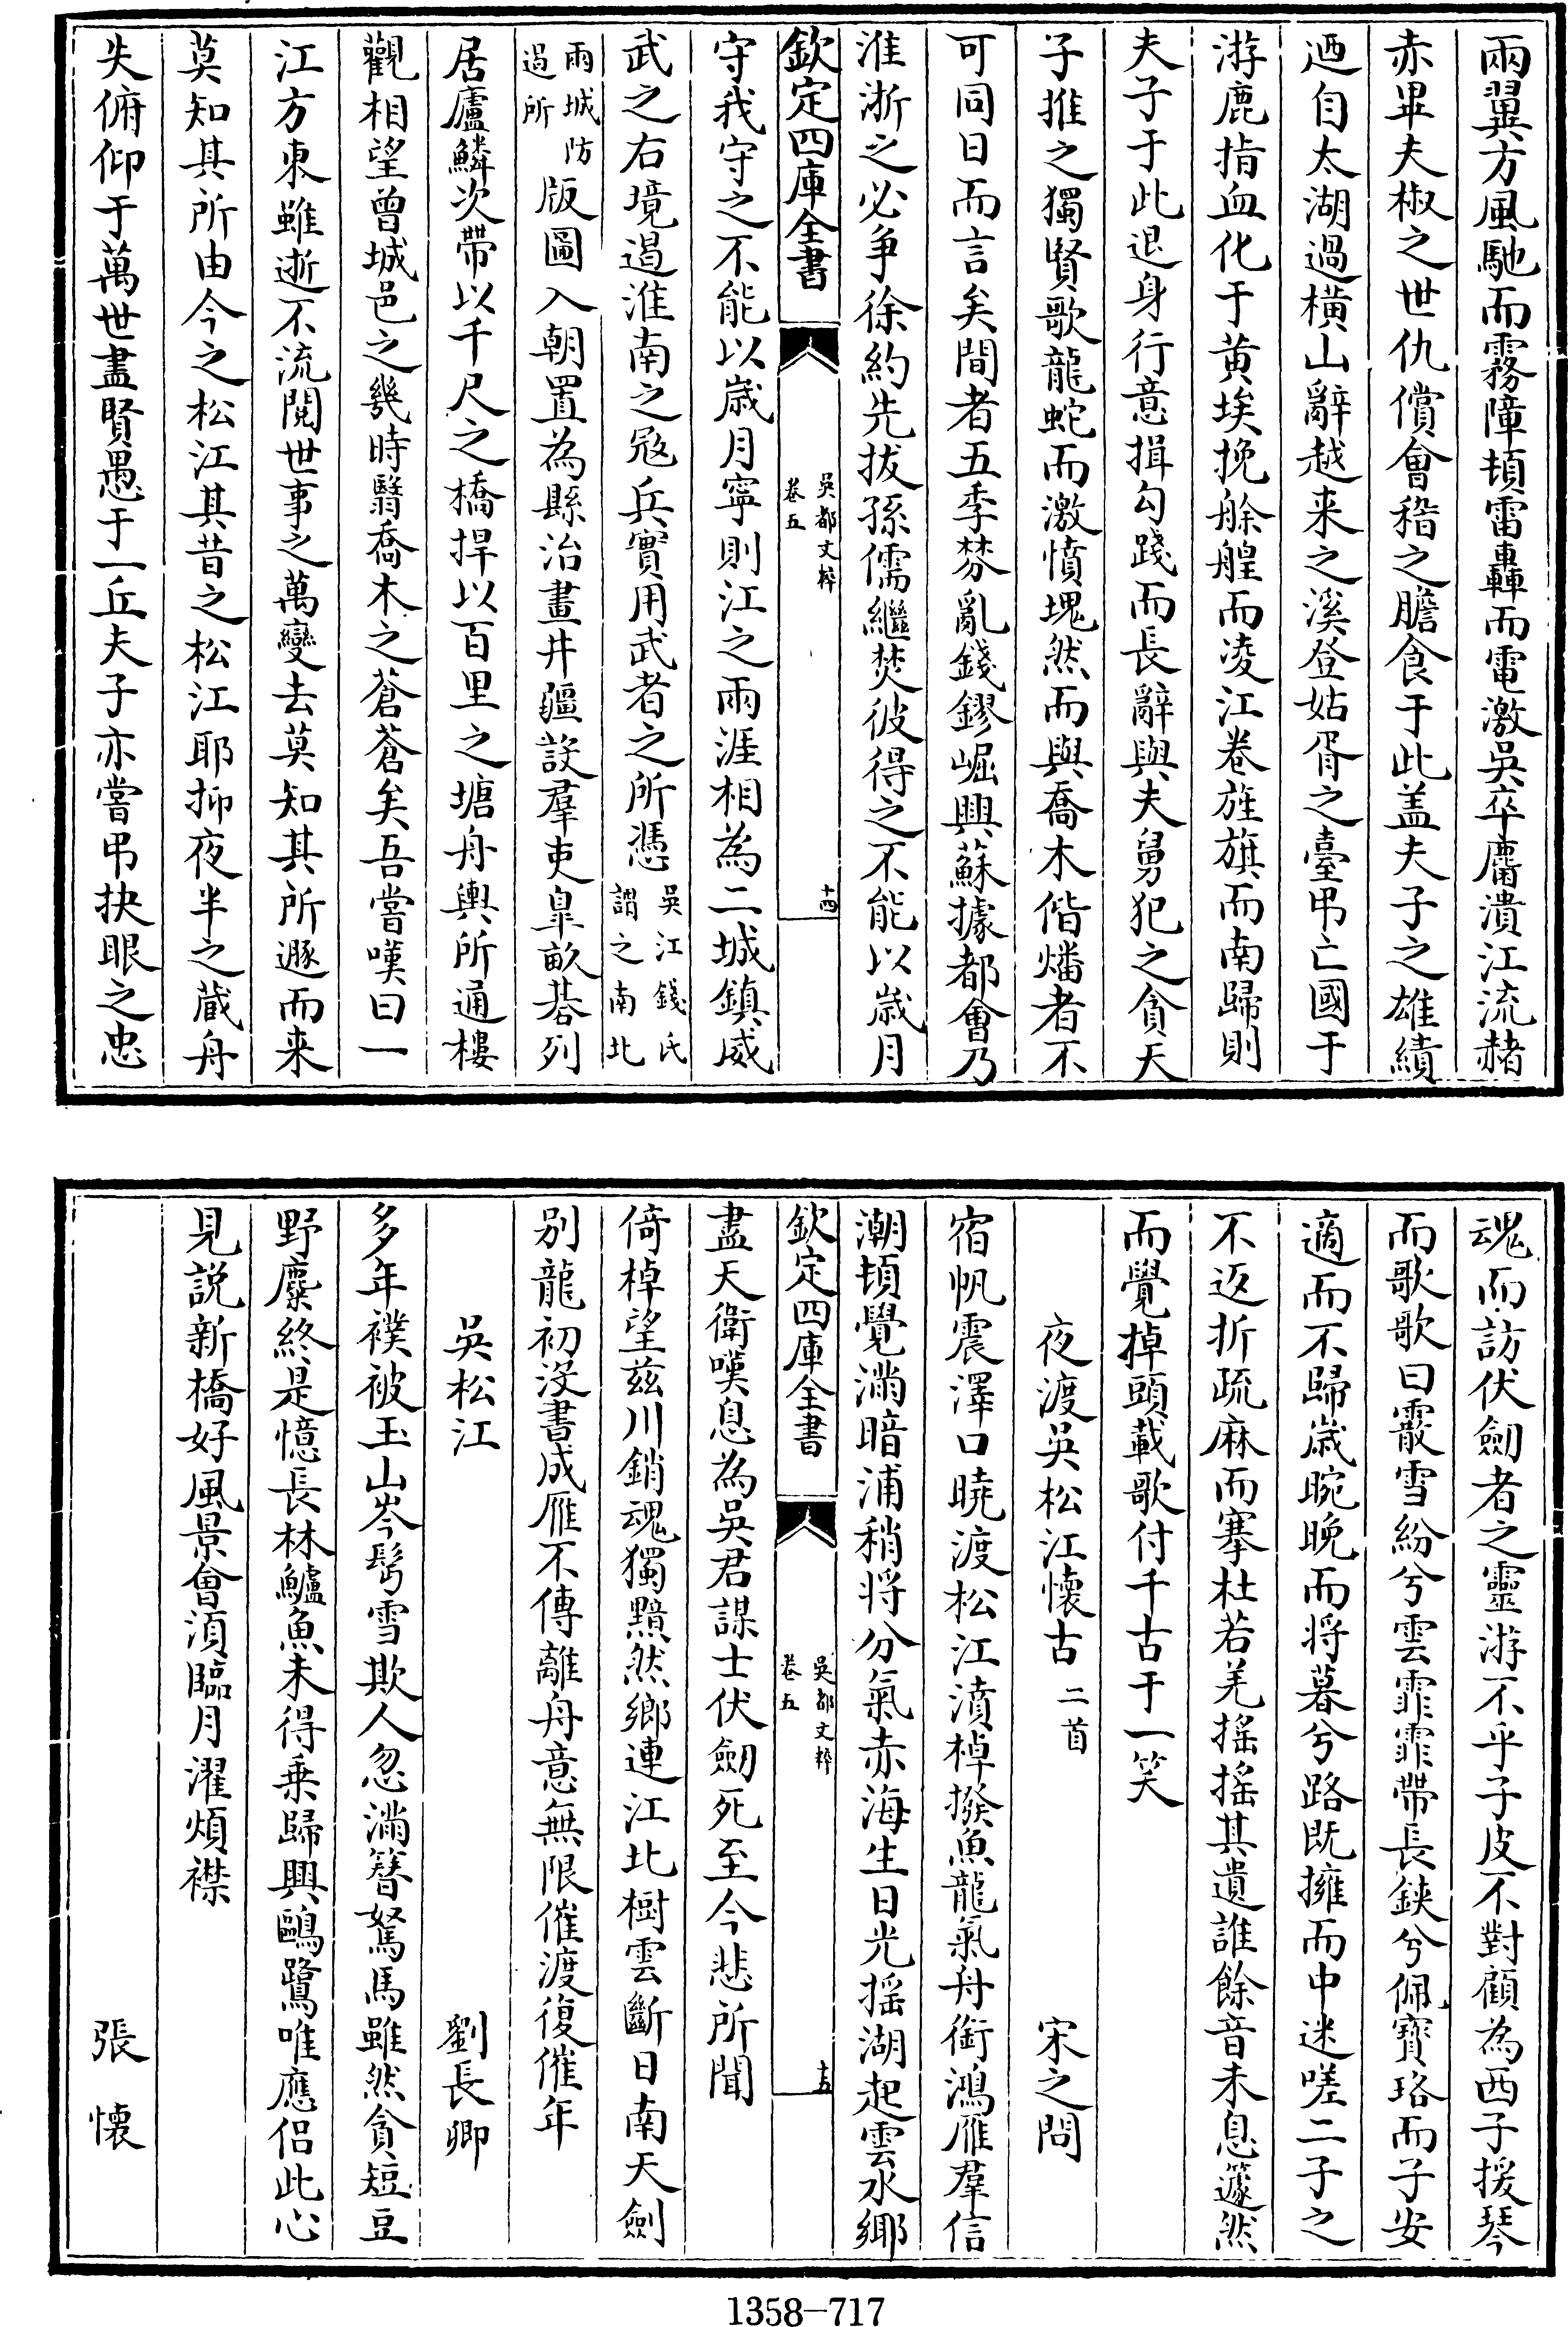 兩翼方風馳而霧障頓雷轟而電激吳卒麕潰江流赭
赤畢夫椒之世仇償會稽之膽食于此盖夫子之雄績
迺自太湖過横山辭越来之溪登姑胥之臺弔亡國于
游鹿指血化于黄埃挽艅艎而凌江卷旌旗而南歸則
夫子于此退身行意揖勾踐而長辭與夫舅犯之貪天
子推之獨賢歌龍蛇而激憤塊然而與喬木偕燔者不
可同日而言矣間者五季棼亂錢鏐崛興蘇據都會乃
淮浙之必争徐約先拔孫儒繼焚彼得之不能以嵗月
欽定四庫全書
吳都文粹
卷五
十四
守我守之不能以嵗月寧則江之兩涯相為二城鎮威
武之右境遏淮南之㓂兵實用武者之所憑吳江錢氏謂之南北
兩城防遏所版圖入朝置為縣治畫井疆設羣吏臯畝碁列
居廬鱗次帶以千尺之橋捍以百里之塘舟輿所通樓
觀相望曾城邑之幾時翳喬木之蒼蒼矣吾嘗嘆曰一
江方東雖逝不流閲世事之萬變去莫知其所遯而来
莫知其所由今之松江其昔之松江耶抑夜半之藏舟
失俯仰于萬世盡賢愚于一丘夫子亦嘗弔抉眼之忠
魂而訪伏劍者之靈游不乎子皮不對顧為西子援琴
而歌歌曰霰雪紛兮雲霏霏帶長鋏兮佩寳珞而子安
適而不歸嵗晼晚而将暮兮路既擁而中迷嗟二子之
不返折疏麻而搴杜若羌摇摇其遺誰餘音未息蘧然
而覺掉頭載歌付千古于一笑
夜渡吳松江懷古二首 宋之問
宿帆震澤口曉渡松江濆棹撥魚龍氣舟衝鴻雁羣信
潮頓覺滿暗浦稍将分氣赤海生日光摇湖起雲水鄉
欽定四庫全書
吳都文粹
卷五
十五
盡天衛嘆息為吳君謀士伏劒死至今悲所聞
倚棹望兹川銷魂獨黯然鄉連江北樹雲斷日南天劍
别龍初没書成雁不傳離舟意無限催渡復催年
吳松江 劉長卿
多年襆被玉山岑髩雪欺人忽滿簪駑馬雖然貪短豆
野麋終是憶長林鱸魚未得乗歸興鷗鷺唯應侣此心
見説新橋好風景會須臨月濯煩襟
張懷
1358-717